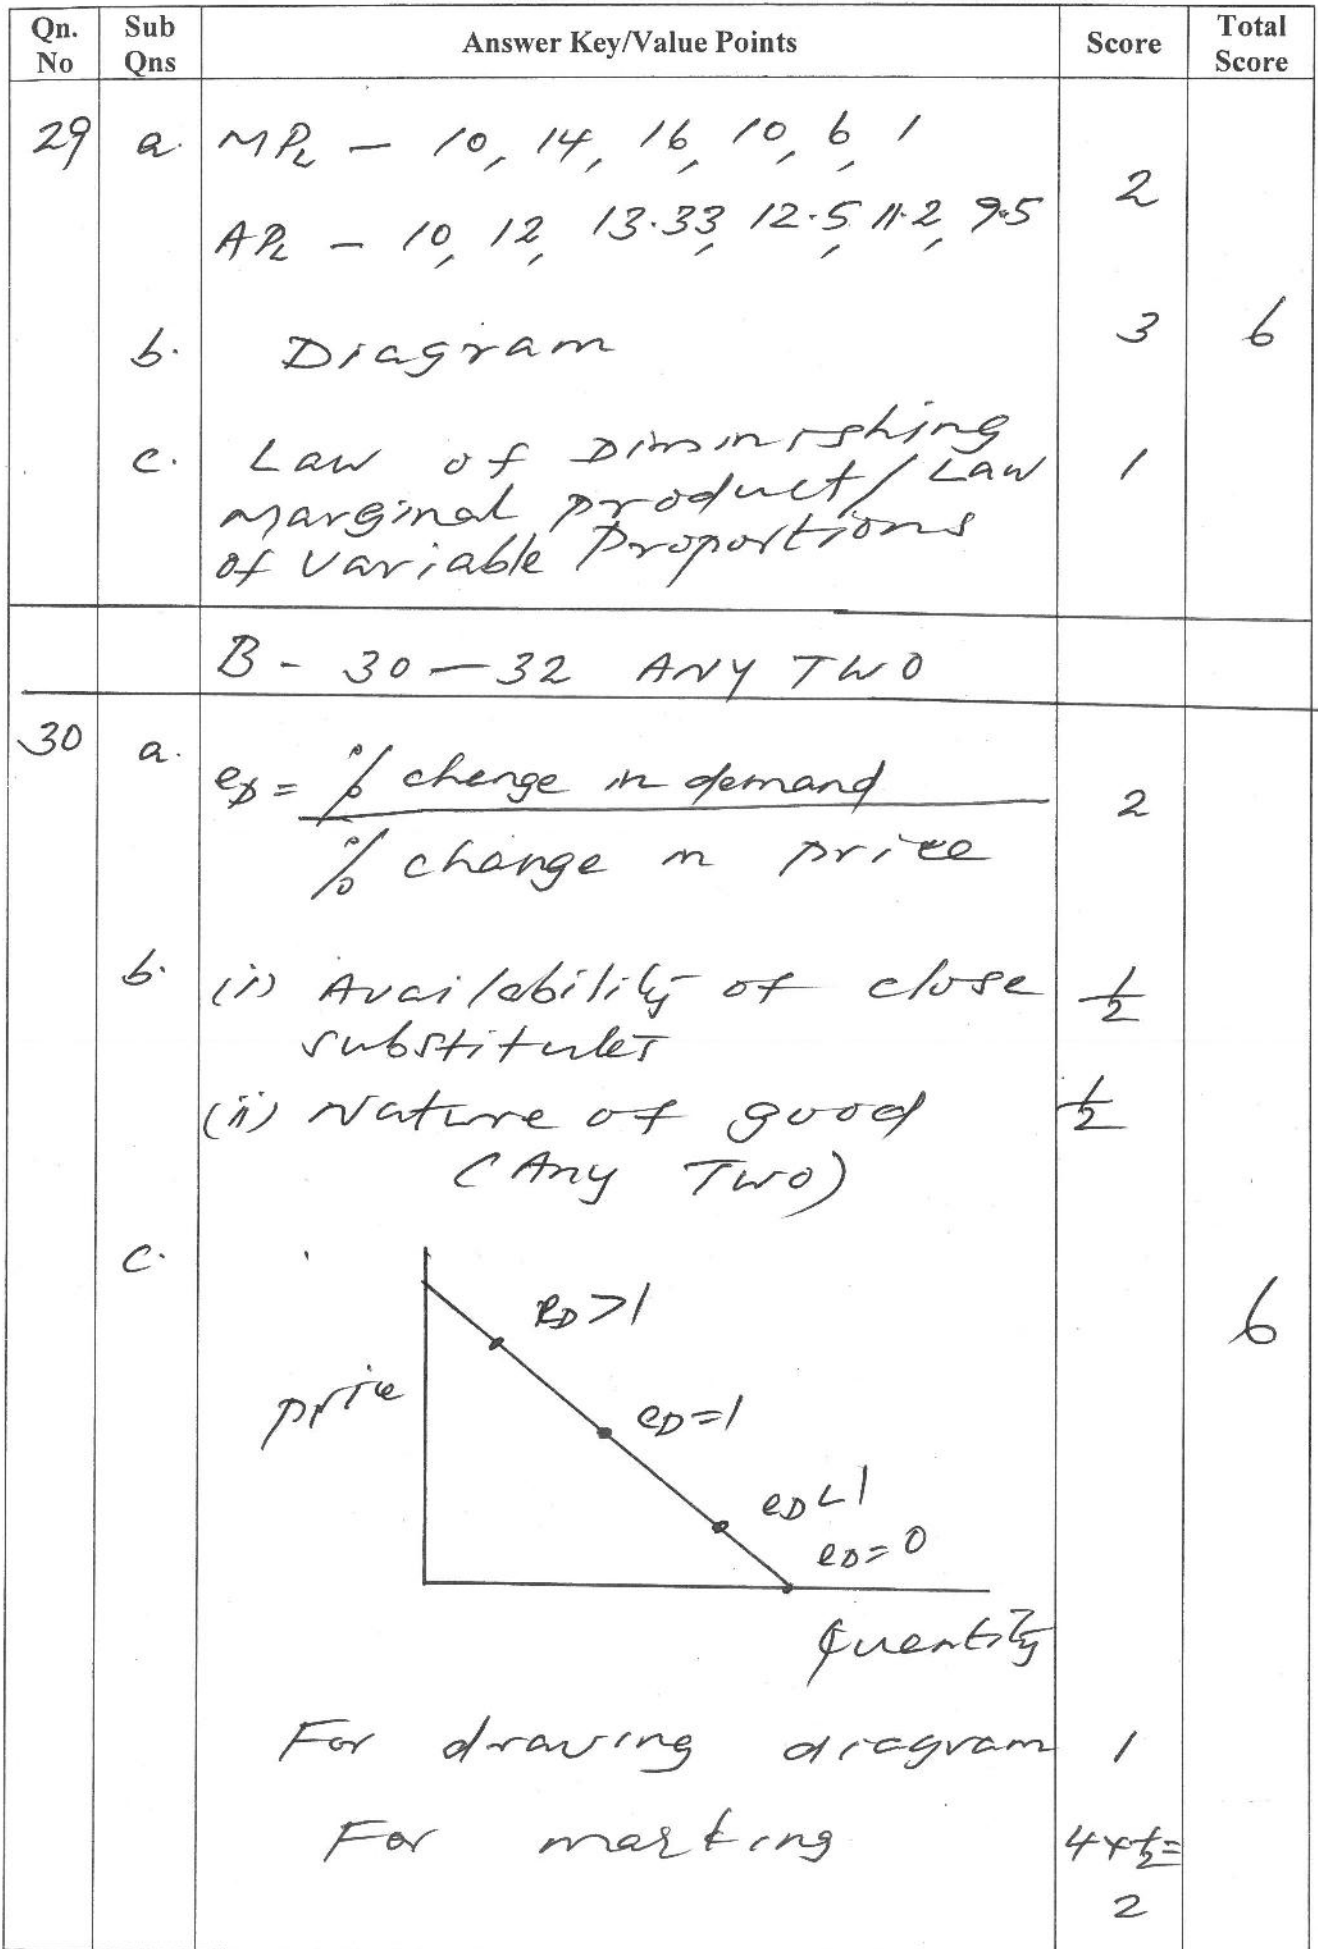 Qn. No Sub Qns Answer Key/Value Points Score Total Score
29 a. MPL – 10, 14, 16, 10, 6, 1
2
APL – 10, 12, 13.33, 12.5, 11.2, 9.5
b. Diagram 3 6
c. Law of Diminishing 1
marginal product/Law
of variable Proportions
B - 30 — 32 ANY TWO
30 a. eD = % change in demand
2
% change in price
b. (i) Availability of close 1/2
substitutes
(ii) Nature of good 1/2
(Any Two)
c.
eD>1 6
price
eD=1
eD<1
eD=0
Quantity
For drawing diagram 1
For marking 4×1/2=
2